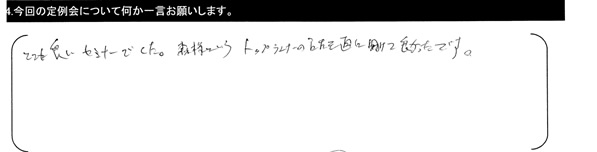 4.今回の定例会について何か一言お願いします。
とても良いセミナーでした。森様というトップランナーの話を直に聞けて良かったです。